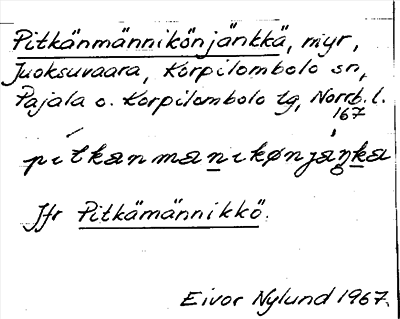 Pitkänmännikönjänkkä, myr,
Juoksuvaara, Korpilombolo sn,
Pajala o. Korpilombolo tg, Norrb. l.
167
pitkanmanikønjaŋka
Jfr Pitkämännikkö.
Eivor Nylund 1967.